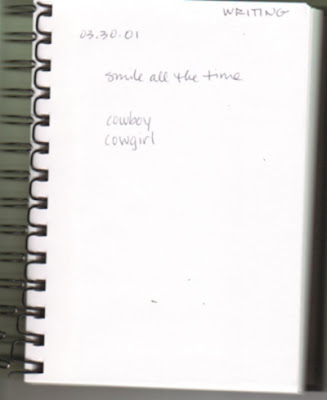 WRITING
03.30.01
smile all the time
cowboy
cowgirl